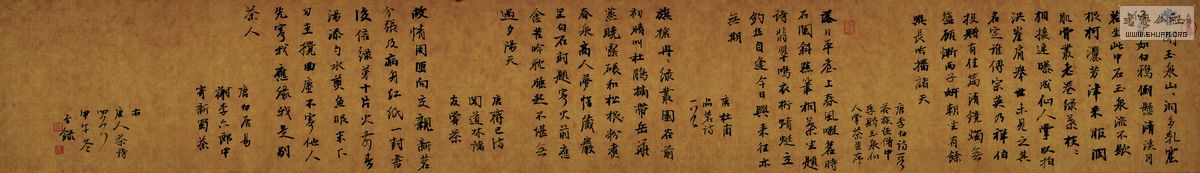 玉泉山洞多乳窟
如白鴉倒懸清溪月
茗生此中石玉泉流不歇
根柯灑芳津采服潤
肌骨叢老卷綠葉枝枝
相接連曝成仙人掌以拍
洪崖肩舉世未見之其
名定誰傳宗英乃禪伯
投贈有佳篇清鏡燭無
鹽顧慚西子妍朝坐有餘
興長吟播諸天
唐李白詩一首
茶族侄僧中
孚贈玉泉仙
人掌茶並序
落日平臺上春風啜茗時
石闌斜點筆桐葉坐題
詩翡翠鳴衣桁蜻蜓立
釣絲自逢今日興來往亦
無期
唐杜甫
品茗詩
一首
旗槍冉冉綠叢園谷前
初晴叫杜鵑摘帶岳華
蒸曉露碾和松粉煮
春泉高人夢惜藏巖
里白石封題寄火前應
念苦吟耽睡起不堪無
過夕陽天
唐齊己詩
聞道林諸
友嘗茶
故情周匝向交親新茗
分張及病身紅紙一封書
後信綠芽十片火前春
湯添勺水煎魚眼末下
刀圭攪曲塵不寄他人
先寄我應緣我是別
茶人
唐白居易
謝李六郎中
寄新蜀茶
右
唐人茶詩
四首
甲午冬
WWW.SHUFA.ORG